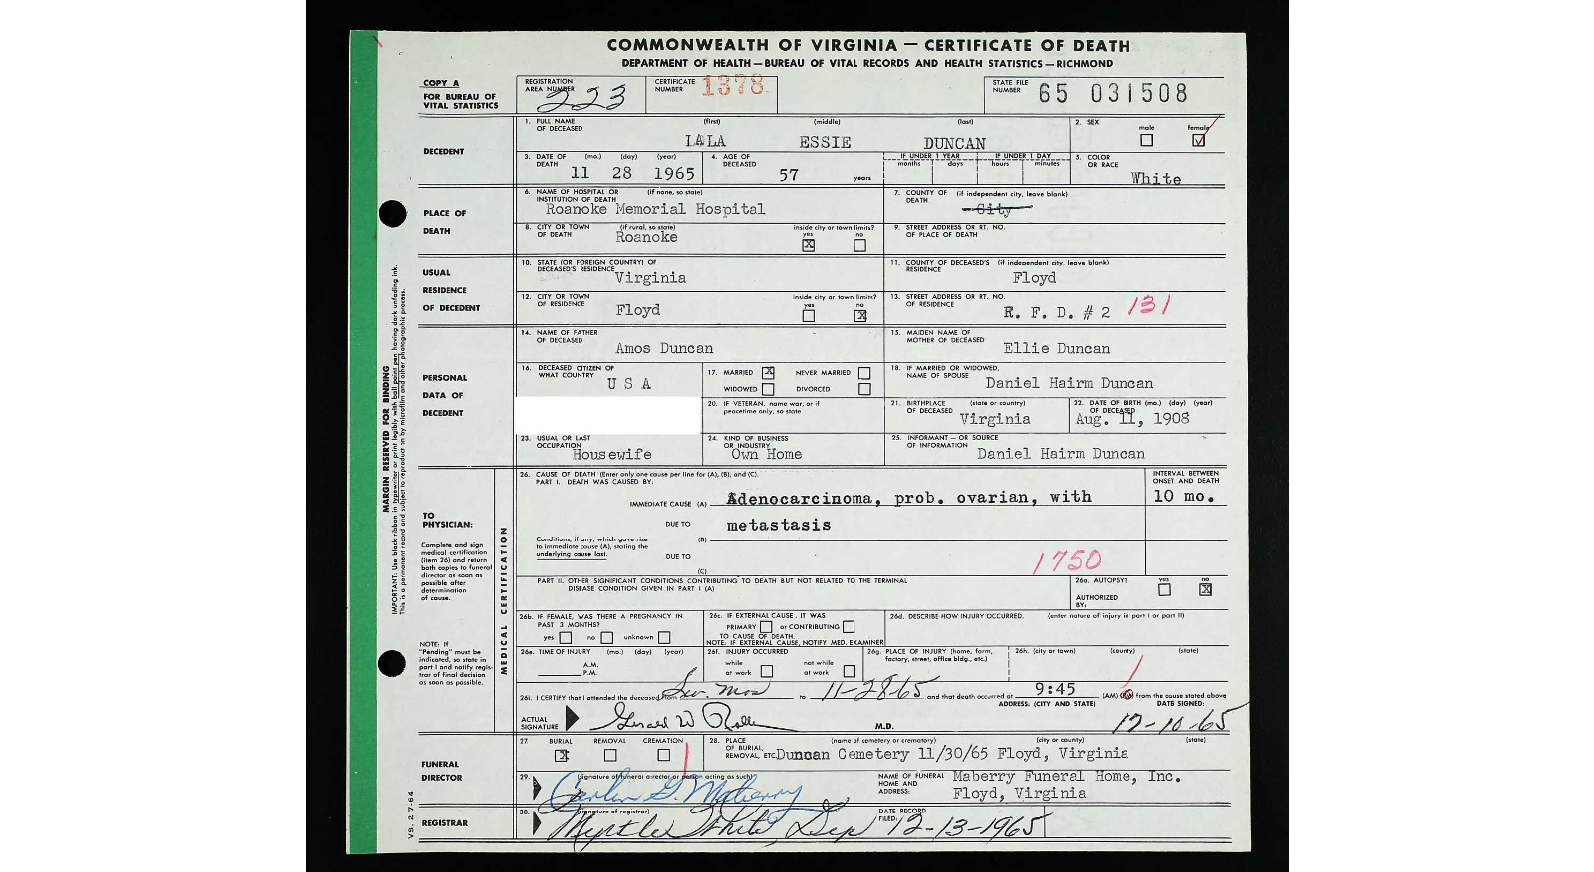 COMMONWEALTH OF VIRGINIA — CERTIFICATE OF DEATH
DEPARTMENT OF HEALTH—BUREAU OF VITAL RECORDS AND HEALTH STATISTICS—RICHMOND
COPY A
FOR BUREAU OF
VITAL STATISTICS
REGISTRATION
AREA NUMBER 223
CERTIFICATE
NUMBER 1378
STATE FILE
NUMBER 65 031508
DECEDENT
1. FULL NAME (first) (middle) (last)
OF DECEASED
LALA ESSIE DUNCAN
2. SEX
male female
3. DATE OF (mo.) (day) (year)
DEATH
11 28 1965
4. AGE OF
DECEASED
57 years
IF UNDER 1 YEAR IF UNDER 1 DAY
months days hours minutes
5. COLOR
OR RACE
White
PLACE OF
DEATH
6. NAME OF HOSPITAL OR (if none, so state)
INSTITUTION OF DEATH
Roanoke Memorial Hospital
7. COUNTY OF (if independent city, leave blank)
DEATH
City
8. CITY OR TOWN (if rural, so state)
OF DEATH
Roanoke
inside city or town limits?
yes no
X
9. STREET ADDRESS OR RT. NO.
OF PLACE OF DEATH
USUAL
RESIDENCE
OF DECEDENT
10. STATE (OR FOREIGN COUNTRY) OF
DECEASED'S RESIDENCE
Virginia
11. COUNTY OF DECEASED'S (if independent city, leave blank)
RESIDENCE
Floyd
12. CITY OR TOWN
OF RESIDENCE
Floyd
inside city or town limits?
yes no
X
13. STREET ADDRESS OR RT. NO.
OF RESIDENCE
R. F. D. #2 131
PERSONAL
DATA OF
DECEDENT
14. NAME OF FATHER
OF DECEASED
Amos Duncan
15. MAIDEN NAME OF
MOTHER OF DECEASED
Ellie Duncan
16. DECEASED CITIZEN OF
WHAT COUNTRY
U S A
17. MARRIED X NEVER MARRIED
WIDOWED DIVORCED
18. IF MARRIED OR WIDOWED,
NAME OF SPOUSE
Daniel Hairm Duncan
20. IF VETERAN, name war, or if
peacetime only, so state
21. BIRTHPLACE (state or country)
OF DECEASED
Virginia
22. DATE OF BIRTH (mo.) (day) (year)
OF DECEASED
Aug. 11, 1908
23. USUAL OR LAST
OCCUPATION
Housewife
24. KIND OF BUSINESS
OR INDUSTRY
Own Home
25. INFORMANT — OR SOURCE
OF INFORMATION
Daniel Hairm Duncan
MARGIN RESERVED FOR BINDING
IMPORTANT: Use black ribbon in typewriter or print legibly with ball point pen having dark unfading ink.
This is a permanent record and subject to reproduction by microfilm and other photographic process.
TO
PHYSICIAN:
Complete and sign
medical certification
(item 26) and return
both copies to funeral
director as soon as
possible after
determination
of cause.
NOTE: If
"Pending" must be
indicated, so state in
part I and notify regis-
trar of final decision
as soon as possible.
MEDICAL CERTIFICATION
26. CAUSE OF DEATH (Enter only one cause per line for (A), (B), and (C).
PART I. DEATH WAS CAUSED BY:
INTERVAL BETWEEN
ONSET AND DEATH
IMMEDIATE CAUSE (A) Adenocarcinoma, prob. ovarian, with 10 mo.
DUE TO metastasis
(B)
Conditions, if any, which gave rise
to immediate cause (A), stating the
underlying cause last.
DUE TO
(C)
1750
PART II. OTHER SIGNIFICANT CONDITIONS CONTRIBUTING TO DEATH BUT NOT RELATED TO THE TERMINAL
DISEASE CONDITION GIVEN IN PART I (A)
26a. AUTOPSY? yes no
X
AUTHORIZED
BY:
26b. IF FEMALE, WAS THERE A PREGNANCY IN
PAST 3 MONTHS?
yes no unknown
26c. IF EXTERNAL CAUSE, IT WAS
PRIMARY or CONTRIBUTING
TO CAUSE OF DEATH.
NOTE: IF EXTERNAL CAUSE, NOTIFY MED. EXAMINER
26d. DESCRIBE HOW INJURY OCCURRED. (enter nature of injury in part I or part II)
26e. TIME OF INJURY (mo.) (day) (year)
A.M.
P.M.
26f. INJURY OCCURRED
while not while
at work at work
26g. PLACE OF INJURY (home, farm,
factory, street, office bldg., etc.)
26h. (city or town) (county) (state)
26i. I CERTIFY that I attended the deceased from Sev. Mos to 11-28-65 and that death occurred at 9:45 (AM) (PM) from the cause stated above
ADDRESS: (CITY AND STATE) DATE SIGNED:
ACTUAL
SIGNATURE Gerard W M.D. 12-10-65
FUNERAL
DIRECTOR
27. BURIAL REMOVAL CREMATION
X
28. PLACE (name of cemetery or crematory) (city or county) (state)
OF BURIAL,
REMOVAL, ETC. Duncan Cemetery 11/30/65 Floyd, Virginia
29. (signature of funeral director or person acting as such)
Mabery
NAME OF FUNERAL
HOME AND
ADDRESS:
Maberry Funeral Home, Inc.
Floyd, Virginia
REGISTRAR
30. (signature of registrar)
Myrtle White, Dep
DATE RECORD
FILED: 12-13-1965
VS. 27-64